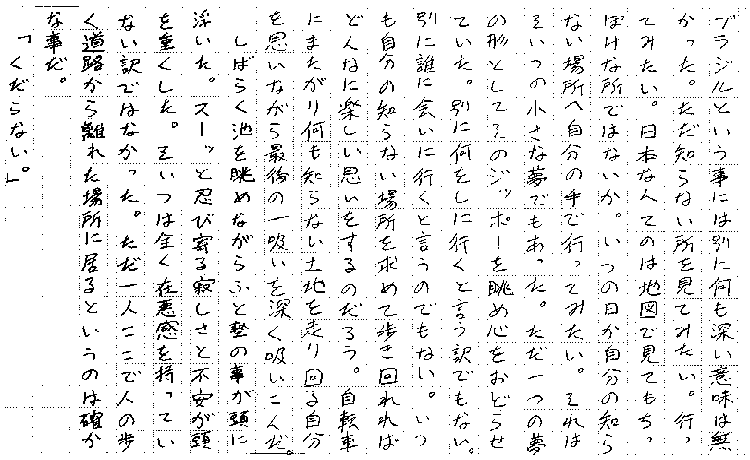 ブラジルという事には別に何も深い意味は無
かった。ただ知らない所を見てみたい。行っ
てみたい。日本な人てのは地図で見てもちっ
ぽけな所ではないか。いつの日か自分の知ら
ない場所へ自分の手で行ってみたい。それは
そいつの小さな夢でもあった。ただ一つの夢
の形としてそのジッポーを眺め心をおどらせ
ていた。別に何をしに行くと言う訳でもない。
別に誰に会いに行くと言うのでもない。いつ
も自分の知らない場所を求めて歩き回れれば
どんなに楽しい思いをするのだろう。自転車
にまたがり何も知らない土地を走り回る自分
を思いながら最後の一吸いを深く吸いこんだ。
しばらく池を眺めながらふと塾の事が頭に
浮いた。スーッと忍び寄る寂しさと不安が頭
を重くした。そいつは全く在悪感を持ってい
ない訳ではなかった。ただ一人ここで人の歩
く道路から離れた場所に居るというのは確か
な事だ。
「くだらない。」